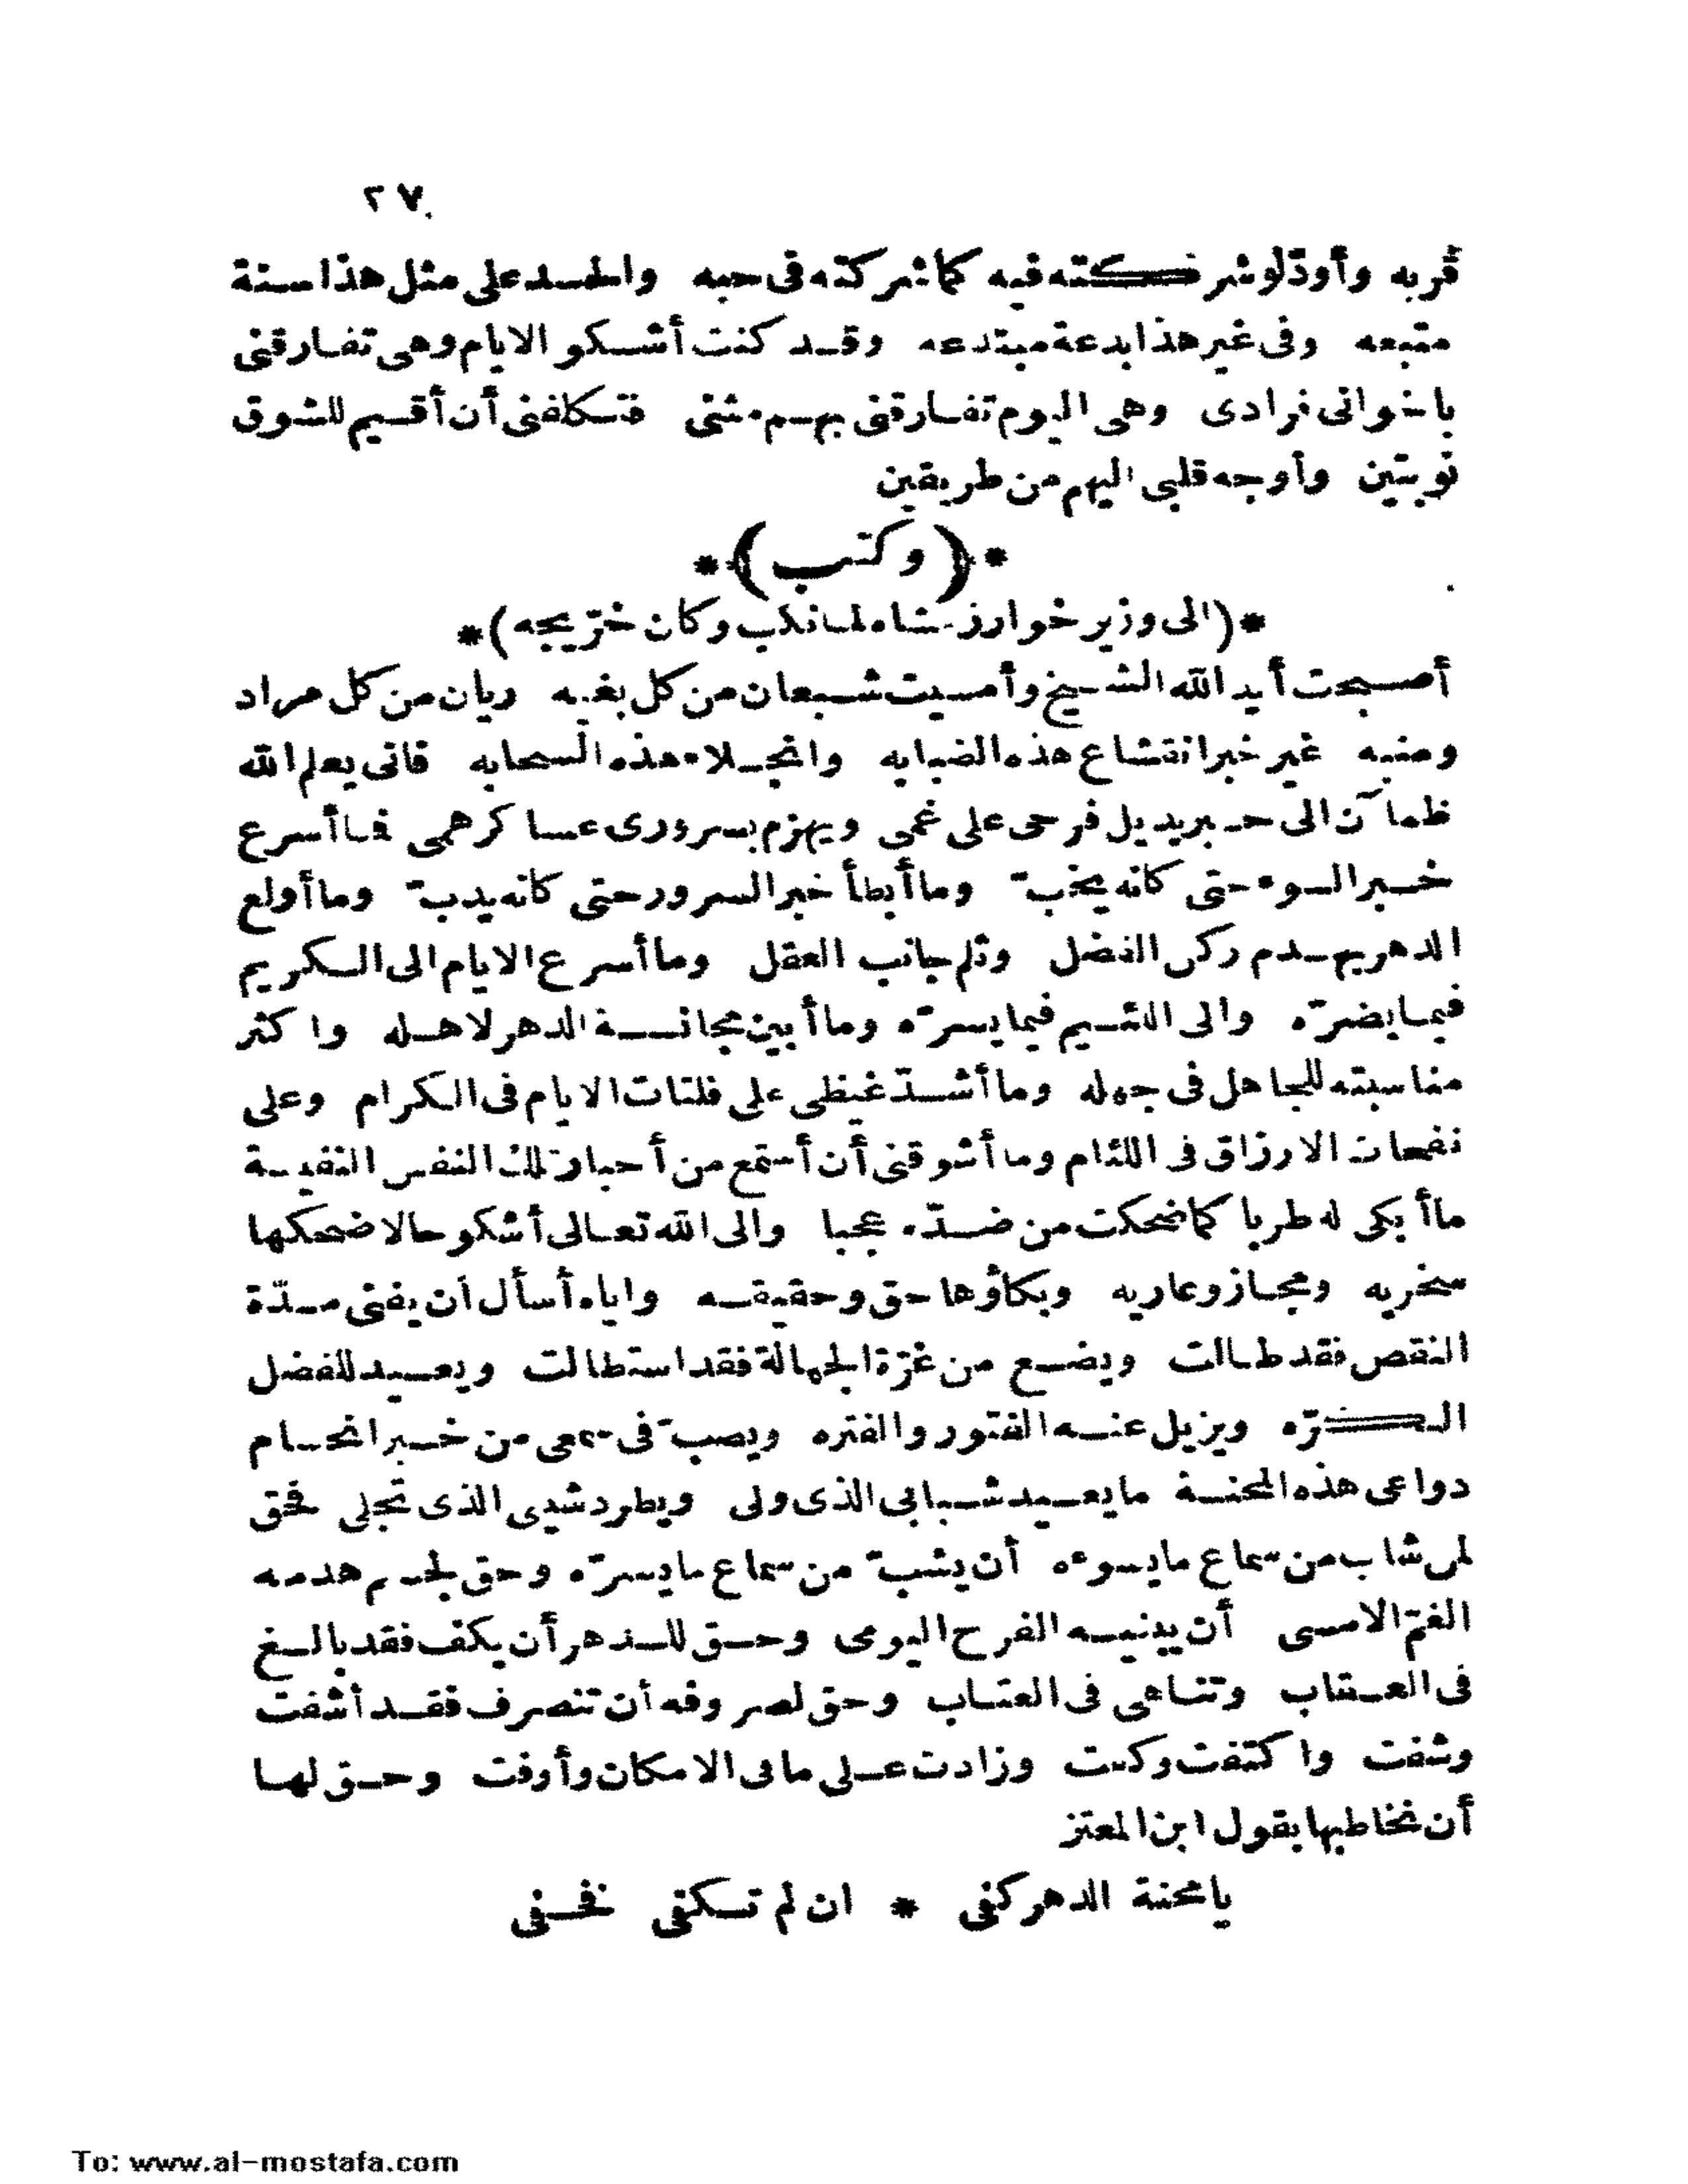 ٢٧
قربه وأودّ لو شركته فيه كما شركته فى حبه والحسد على مثل هذا سنة
متبعه وفى غير هذا بدعة مبتدعه وقد كنت أشكو الايام وهى تفارقنى
باخوانى فرادى وهى اليوم تفارقنى بهم مثنى فتكلفنى أن أقيم للشوق
نوبتين وأوجه قلبى اليهم من طريقين
*(وكتب)*
*(الى وزير خوارزمشاه لما نكب وكان خرّيجه)*
أصبحت أيد الله الشيخ وأمسيت شبعان من كل بغيه ريان من كل مراد
ومنيه غير خبر انقشاع هذه الضبابه وانجلاء هذه السحابه فانى يعلم الله
ظمآن الى خبر يديل فرحى على غمى ويهزم بسرورى عساكر همى فما أسرع
خبر السوء حتى كانه يخبّ وما أبطأ خبر السرور حتى كانه يدبّ وما أولع
الدهر بهدم ركن الفضل وثلم جانب العقل وما أسرع الايام الى الكريم
فيما يضرّه والى اللئيم فيما يسرّه وما أبين مجانسة الدهر لاهله واكثر
مناسبته للجاهل فى جهله وما أشدّ غيظى على فلتات الايام فى الكرام وعلى
نفحات الارزاق فى اللئام وما أشوقنى أن أستمع من أخبار تلك النفس النفيسة
ما أبكى له طربا كما ضحكت من ضدّه عجبا والى الله تعالى أشكو حالا ضحكها
سخريه ومجاز وعاريه وبكاؤها حق وحقيقه واياه أسأل ان يفنى مدّة
النقص فقد طالت ويضع من غرّة الجهالة فقد استطالت ويعيد للفضل
الكرّه ويزيل عنه الفتور والفتره ويصبّ فى سمعى من خبر انحسام
دواعى هذه المحنة ما يعيد شبابى الذى ولى ويطرد شيبى الذى تجلى فحق
لمن شاب من سماع ما يسوءه أن يشبّ من سماع ما يسرّه وحق لجسم هدمه
الغمّ الامسى أن يبنيه الفرح اليومى وحق للدهر أن يكف فقد بالغ
فى العقاب وتناهى فى العتاب وحق لصروفه أن تنصرف فقد أشفت
وشفت واكتفت وكفت وزادت على ما فى الامكان وأوفت وحق لها
أن نخاطبها بقول ابن المعتز
يا محنة الدهر كفى * ان لم تكفى فخفى
To: www.al-mostafa.com